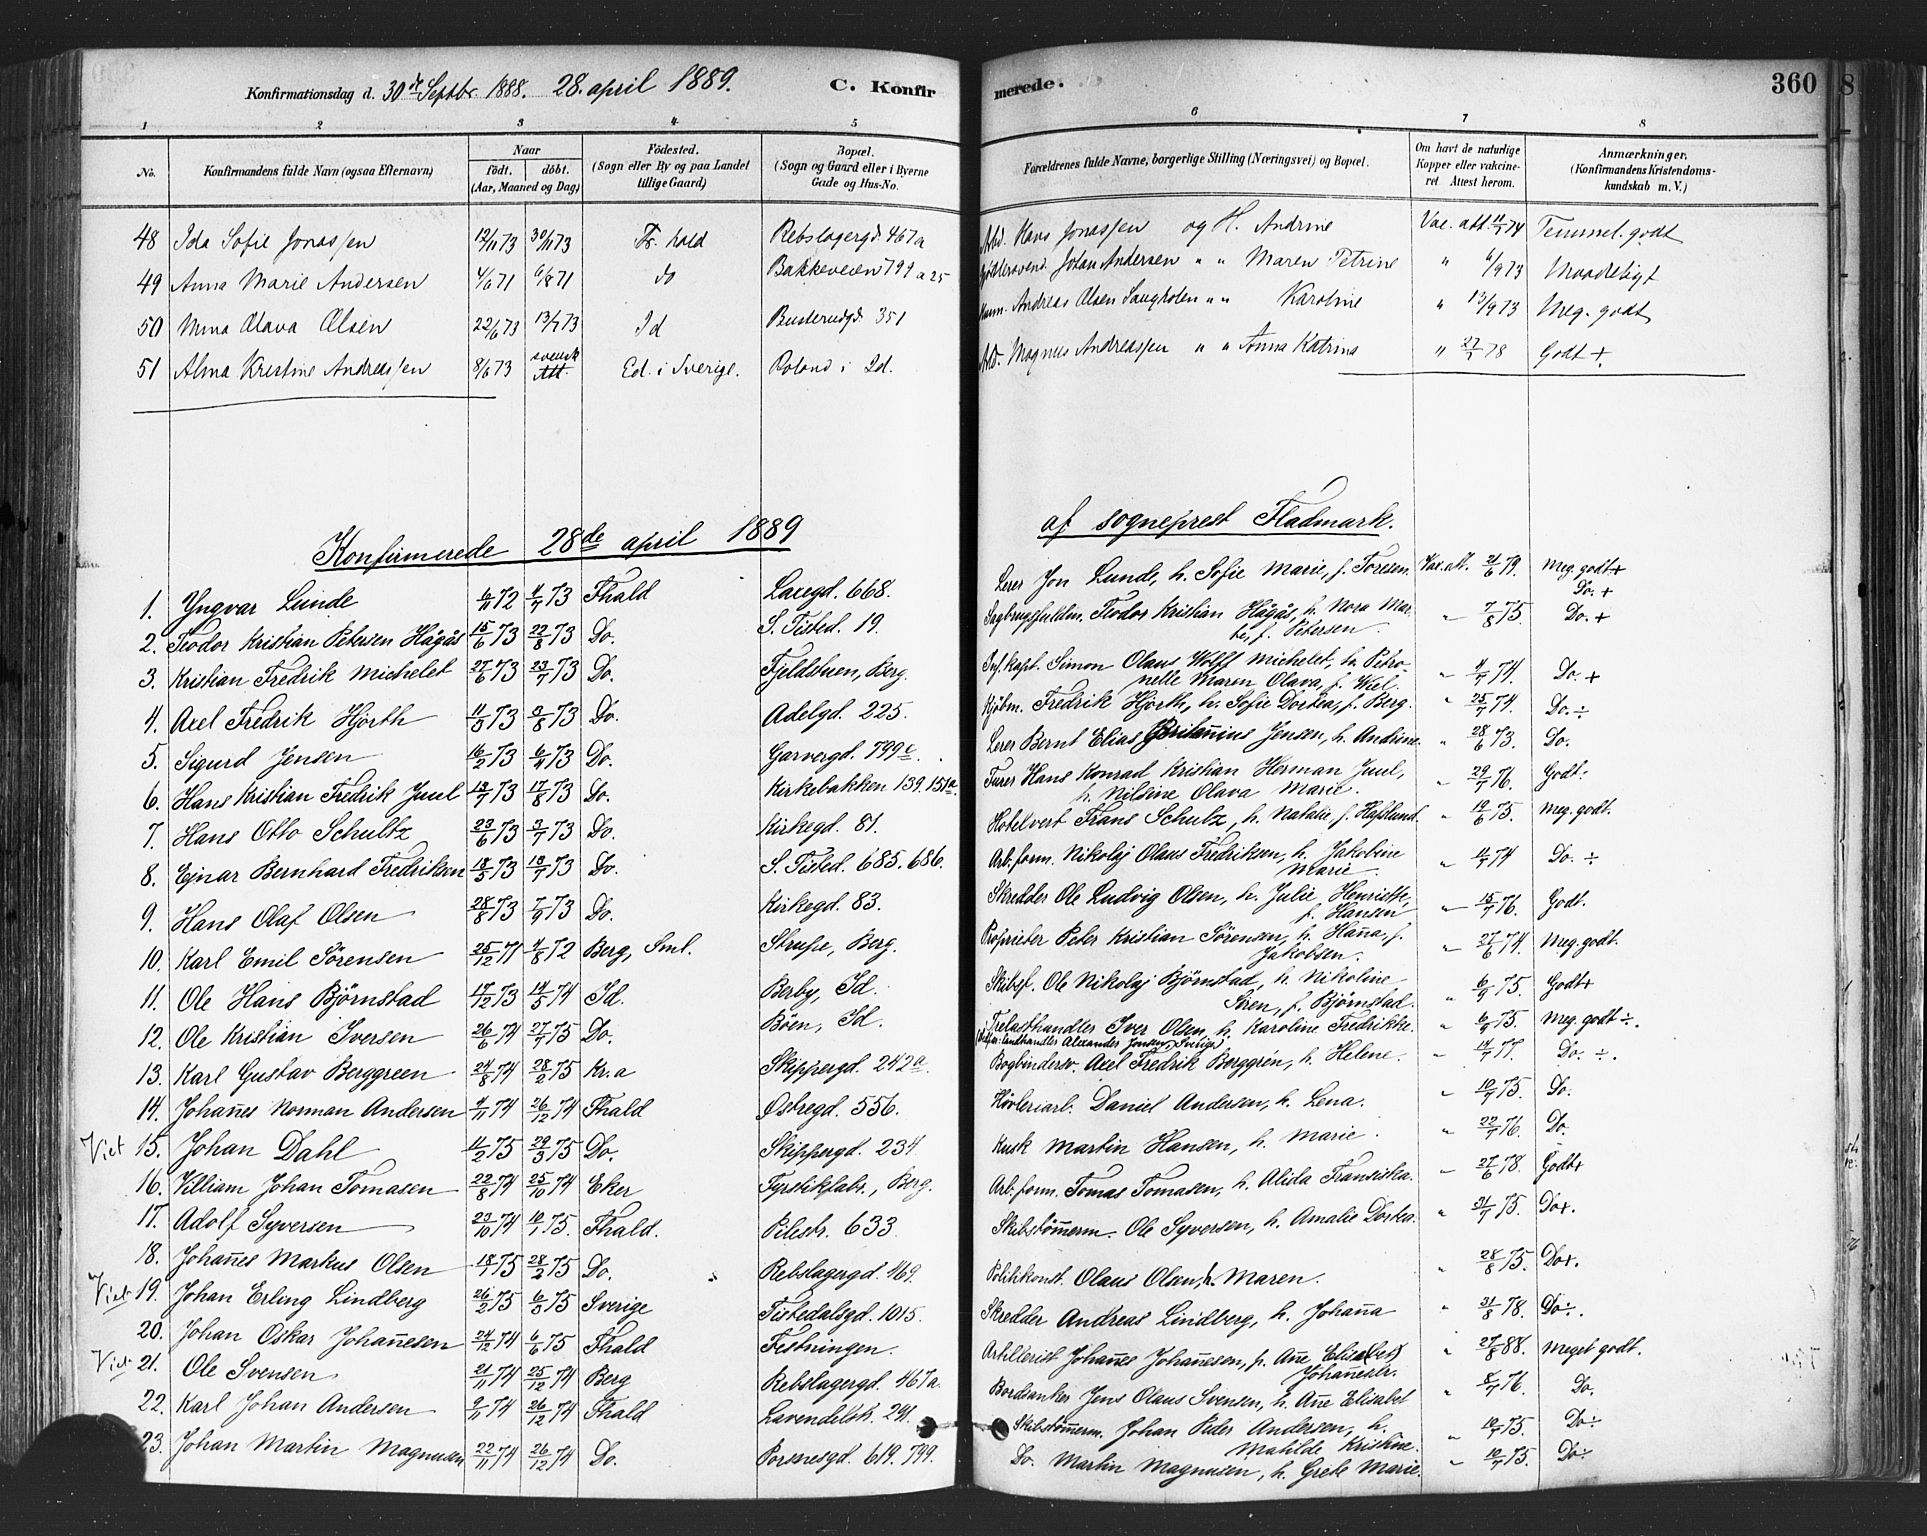 Konfirmationsdag d. 30de Septbr. 1888. 28. april 1889. C. Konfir
merede. 360
1 2 3 4 5 6 7 8
No. Konfirmandens fulde Navn (ogsaa Efternavn) Naar født. døbt. (Aar, Maaned og Dag) Fødested. (Sogn eller By og paa Landet tillige Gaard) Bopæl. (Sogn og Gaard eller i Byerne Gade og Hus-No. Forældrenes fulde Navne, borgerlige Stilling (Næringsvei) og Bopæl. Om havt de naturlige Kopper eller vakcineret. Attest herom. Anmærkninger. (Konfirmandens Kristendomskundskab m. V.)
48 Ida Sofie Jonassen 12/11 73 30/11 73 Fr. hald Rebslagergd. 467a Arbd. Hans Jonassen og H. Andrine Vac. att. 11/7 74 Temmel. godt
49 Anna Marie Andersen 4/6 71 6/8 71 do Bakkeveien 799 a 25 Johan Andersen " " Maren Petrine " 6/9 73 Maadeligt
50 Mina Olava Olsen 22/6 73 13/7 73 Id Busterudgd. 351 Andreas Olsen Saugholen " " Karoline " 13/9 73 Meg. godt
51 Alma Kristine Andreassen 8/6 73 svensk Att. Ed. i Sverige. Roland i Id. Arb. Magnus Andreassen " " Anna Katrina " 27/7 78 Godt +
Konfirmerede 28de april 1889 af sogneprest Fladmark.
1. Yngvar Lunde 6/11 72 4/7 73 Fhald Laregd. 668. Lerer Jon Lunde, h. Sofie Marie, f. Toresen. Vax. att. 21/6 79. Meg. godt +
2. Teodor Kristian Petersen Hågås 15/6 73 22/8 73 Do. S. Tisted. 19. Sagbrugsfuldm. Teodor Kristian Hågås, h. Nora Marte, f. Petersen. " 7/8 75. Do. +
Do. +
3. Kristian Fredrik Michelet 27/6 73 23/7 73 Do. Fjeldstuen, Berg. Inf. kapt. Simon Olaus Wolff Michelet, h. Petronelle Maren Olava, f. Wiel. " 4/7 74. Do. +
4. Axel Fredrik Hjorth 11/3 73 3/8 73 Do. Adelgd. 225. Kjøbm. Fredrik Hjorth, h. Sofie Dortea, f. Berg. " 25/7 74. Do. ÷
5. Sigurd Jensen 16/2 73 6/4 73 Do. Garvergd. 799c. Lerer Bernt Elias Jensen, h. Andrine. " 28/6 73. Do.
6. Hans Kristian Fredrik Juul 13/7 73 17/8 73 Do. Kirkebakken 139. 151a. Furer Hans Konrad Kristian Herman Juul, h. Nilsine Olava Marie. " 29/7 76. Godt.
7. Hans Otto Schultz 23/6 73 3/7 73 Do. Kirkegd. 81. Hotelvert Frans Schulz, h. Natalie f. Hafslund. " 19/6 75. Meg. godt.
8. Ejnar Bernhard Fredriksen 18/5 73 13/7 73 Do. S. Tisted. 685. 686. Arb. form. Nikolaj Olaus Fredriksen, h. Jakobine Marie. " 11/7 74 Do. ÷
9. Hans Olaf Olsen 28/8 73 7/9 73 Do. Kirkegd. 83. Skredder Ole Ludvig Olsen, h. Julie Henriette, f. Hansen " 15/7 76. Godt.
10. Karl Emil Sörensen 25/12 71 4/8 72 Berg, Sml. Strupe, Berg. Proprieter Peter Kristian Sörensen, h. Hanna, f. Jakobsen. " 27/6 74. Meg. godt.
11. Ole Hans Björnstad 17/12 73 14/5 74 Id. Berby, Id. Skibsf. Ole Nikolaj Björnstad, h. Nikoline Siren, f. Björnstad. " 6/9 75. Godt +
12. Ole Kristian Iversen 26/6 74 27/7 75 Do. Böen, Id. Trelasthandler Iver Olsen, h. Karoline Fredrikke. " 6/9 75. Meg. godt ÷.
landhandler Alexander Jensen, Sverige)
13. Karl Gustav Berggreen 24/8 74 28/2 75 Kr.a Skippergd. 242a. Bogbindersv. Axel Fredrik Berggrén, h. Helene. " 14/7 77. Do. ÷.
14. Johannes Norman Andersen 4/11 74 26/12 74 Fhald Østregd. 556. Høvleriarb. Daniel Andersen, h. Lena. " 10/7 75. Do.
Viet 15. Johan Dahl 11/2 75 29/3 75 Do. Skippergd. 234 Kusk Martin Hansen, h. Marie. " 22/7 76. Do.
16. Villiam Johan Tomasen 22/8 74 25/10 74 Eker Fyrstikfabr., Berg. Arb. form. Tomas Tomasen, h. Alida Fransiska. " 27/6 78. Godt +
17. Adolf Syversen 23/10 74 10/1 75. Fhald. Pilestr. 633 Skibstömmerm. Ole Syversen, h. Amalie Dortea. " 31/7 75. Do +.
18. Johannes Markus Olsen 18/1 75 28/2 75 Do. Rebslagergd. 469. Politikonst. Olaus Olsen, h. Maren. " 28/8 75. Do +.
Viet 19. Johan Erling Lindberg 26/2 75 6/3 75 Sverige Tistedalsgd. 1015. Skredder Andreas Lindberg, h. Johanna " 31/8 78. Do ÷.
20. Johan Oskar Johannesen 24/12 74 6/6 75 Fhald Festningen. Artillerist Johannes Johannesen, h. Ane Elisabet Johannesdtr. " 27/8 88. Meget godt.
Viet 21. Ole Svensen 21/11 74 25/12 74 Berg Rebslagergd. 467a. Bordsanker Jens Olaus Svensen, h. Ane Elisabet " 8/7 76. Do.
22. Karl Johan Andersen 9/11 74 26/12 74 Fhald Lavendelstr. 241. Skibstömmerm. Johan Peder Andersen, h. Matilde Kristine. " 19/7 75. Do ÷
23. Johan Martin Magnusen 22/11 74 26/12 74 Do. Porsnesgd. 619. 799. Do. Martin Magnusen, h. Grete Marie. " 10/7 75. Do ÷